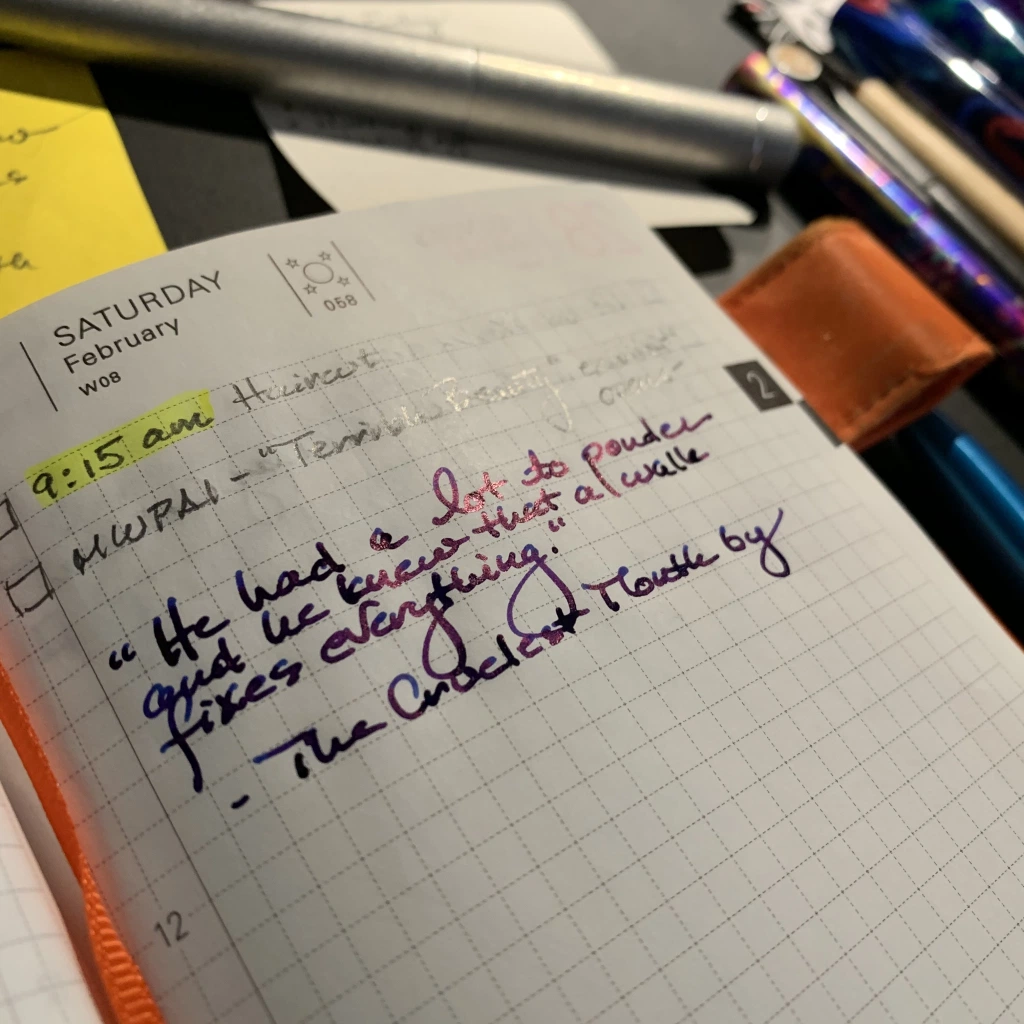 SATURDAY
February
W08
058
2
9:15 am Haircut
MWPAI - "Terrible Beauty"
opener
"He had a lot to ponder
and he knew that a walk
fixes everything."
- The Cruelest Month by
12